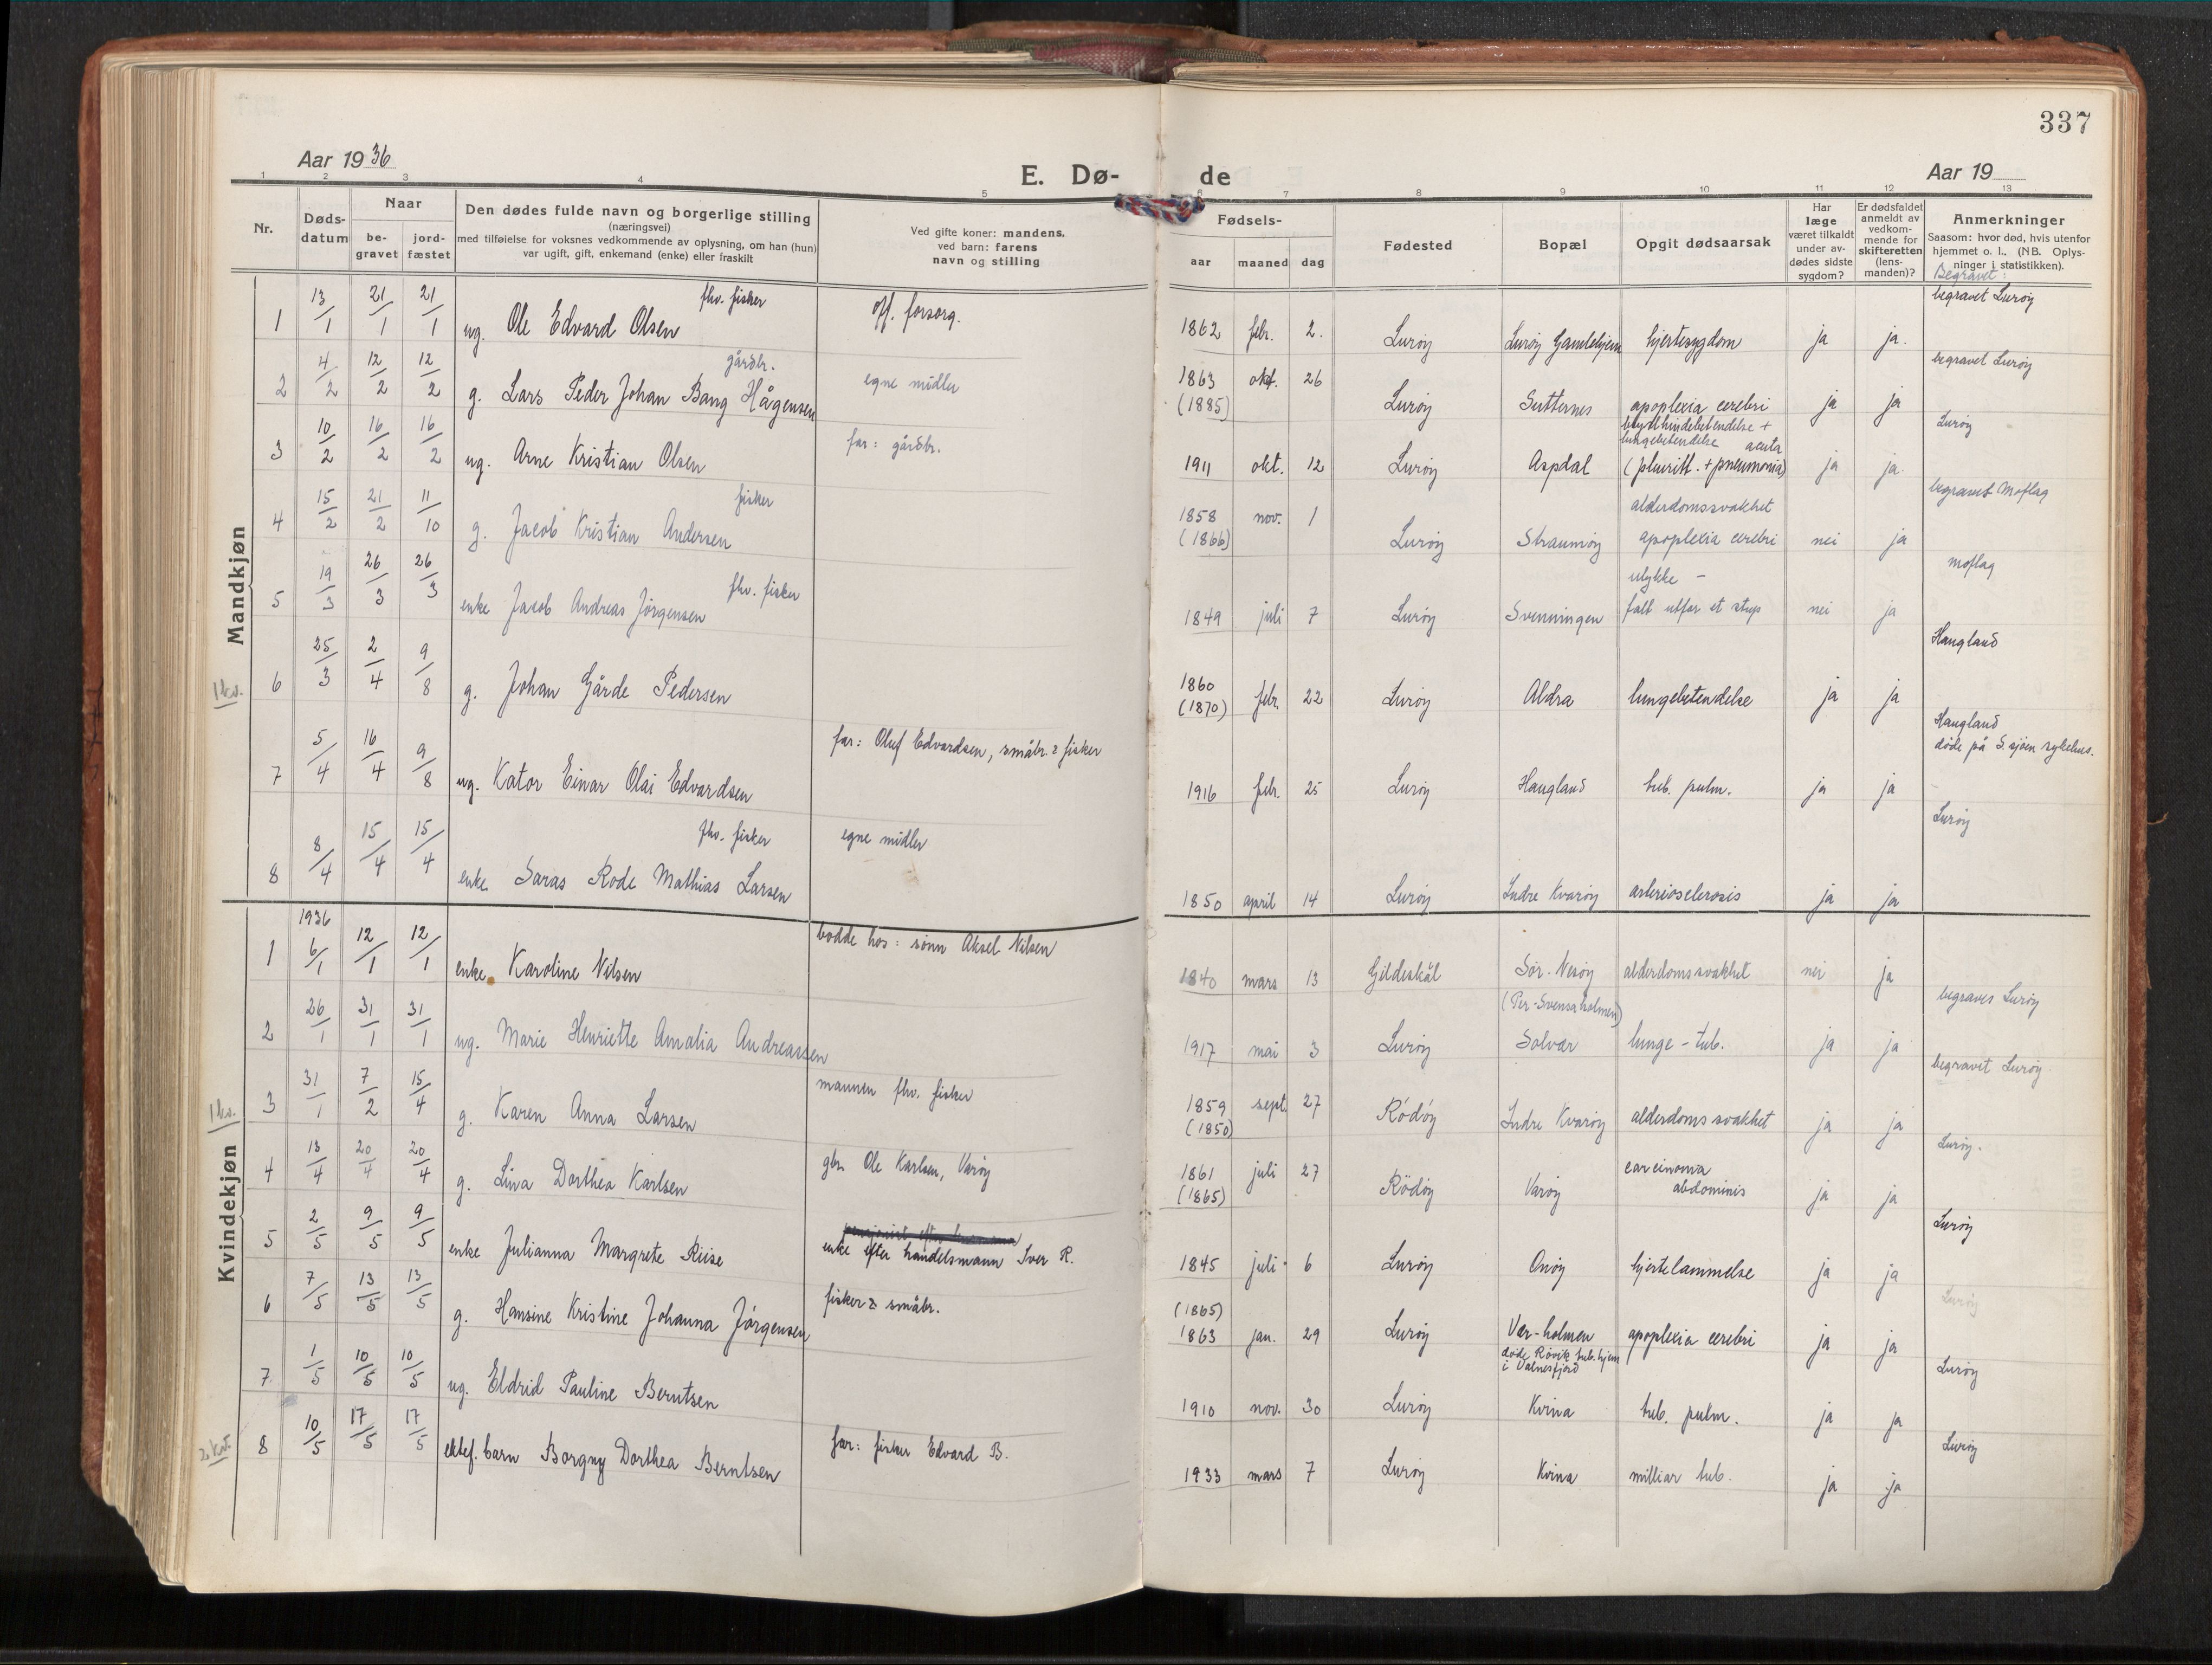 337
Aar 1936
E. Dø-
de
Aar 19
1 2 3 4 5 6 7 8 9 10 11 12 13
Nr.
Døds-
datum
Naar
be-
gravet
jord-
fæstet
Den dødes fulde navn og borgerlige stilling
(næringsvei)
med tilføielse for voksnes vedkommende av oplysning, om han (hun)
var ugift, gift, enkemand (enke) eller fraskilt
Ved gifte koner: mandens,
ved barn: farens
navn og stilling
Fødsels-
aar maaned dag
Fødested
Bopæl
Opgit dødsaarsak
Har
læge
været tilkaldt
under av-
dødes sidste
sygdom?
Er dødsfaldet
anmeldt av
vedkom-
mende for
skifteretten
(lens-
manden)?
Anmerkninger
Saasom: hvor død, hvis utenfor
hjemmet o. l.. (NB. Oplys-
ninger i statistikken).
Begravet:
Mandkjøn
fhv. fisker begravet Lurøy
1 13/1 21/1 21/1 ug. Ole Edvard Olsen off. forsorg. 1862 febr. 2. Lurøy Lurøy Gamlehjem hjertesygdom ja ja.
gårdbr. begravet Lurøy
2 4/2 12/2 12/2 g. Lars Peder Johan Bang Hågensen egne midler 1863 okt. 26 Lurøy Sutternes apoplexia cerebri ja ja
(1885)
brysthindebetendelse +
lungebetendelse acuta
Lurøy
3 10/2 16/2 16/2 ug. Arne Kristian Olsen far: gårdbr. 1911 okt. 12 Lurøy Aspdal (pleuritt. + pneumonia) ja ja
fisker alderdomssvakhet begravet Moflag
4 15/2 21/2 11/10 g. Jacob Kristian Andersen 1858 nov. 1 Lurøy Straumøy apoplexia cerebri nei ja
(1866)
fhv. fisker ulykke – moflag
5 19/3 26/3 26/3 enke Jacob Andreas Jørgensen 1849 juli 7 Lurøy Svenningen falt utfor et stup nei ja
Haugland
1 kv. 6 25/3 2/4 9/8 g. Johan Gårde Pedersen 1860 febr. 22 Lurøy Aldra lungebetendelse ja ja
(1870)
Haugland
døde på S.sjøen sykehus.
7 5/4 16/4 9/8 ug. Kator Einar Olai Edvardsen far: Oluf Edvardsen, småbr. & fisker 1916 febr. 25 Lurøy Haugland tub. pulm. ja ja
fhv. fisker Lurøy
8 8/4 15/4 15/4 enke Saras Rode Mathias Larsen egne midler 1850 april 14 Lurøy Indre Kvarøy arteriosclerosis ja ja
Kvindekjøn
1936
1 6/1 12/1 12/1 enke Karoline Nilsen bodde hos: sønn Aksel Nilsen 1840 mars 13 Gildeskål Sør-Nesøy alderdomssvakhet nei ja
(Per-Svensaholmen)
begraves Lurøy
2 26/1 31/1 31/1 ug. Marie Henriette Amalia Andreassen 1917 mai 3 Lurøy Solvær lunge-tub. ja ja
begravet Lurøy
1 kv. 3 31/1 7/2 15/4 g. Karen Anna Larsen mannen fhv. fisker 1859 sept. 27 Rödöy Indre Kvarøy alderdomssvakhet ja ja
(1850)
Lurøy.
4 13/4 20/4 20/4 g. Lina Dorthea Karlsen gbr. Ole Karlsen, Varøy 1861 juli 27 Rödöy Varøy carcinoma abdominis ja ja
(1865)
Lurøy
5 2/5 9/5 9/5 enke Julianna Margrete Riise enke efter handelsmann Iver R. 1845 juli 6 Lurøy Onøy hjertelammelse ja ja
(1865) Lurøy
6 7/5 13/5 13/5 g. Hansine Kristine Johanna Jörgensen fisker & småbr. 1863 jan. 29 Lurøy Vær-holmen apoplexia cerebri ja ja
døde Røvik tub.hjem
i Valnesfjord
Lurøy
7 1/5 10/5 10/5 ug. Eldrid Pauline Berntsen 1910 nov. 30 Lurøy Kvina tub. pulm. ja ja
Lurøy
2. kv. 8 10/5 17/5 17/5 ektef. barn Borgny Dorthea Berntsen far: fisker Edvard B. 1933 mars 7 Lurøy Kvina milliar tub. ja ja